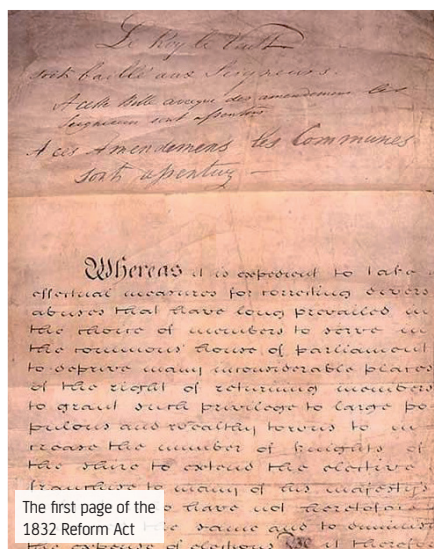 Le Roy le Veult
soit baillé aux Seigneurs.
A cette Bille avecque des amendemens les
Seigneurs sont assentus
A ces Amendemens les Communes
sont assentuz
Whereas it is expedient to take
effectual measures for correcting divers
abuses that have long prevailed in
the choice of members to serve in
the commons house of parliament
to deprive many inconsiderable places
of the right of returning members
to grant such privilege to large po
pulous and wealthy towns to in
crease the number of knights of
the shire to extend the elective
franchise to many of his majesty's
have not heretofore
the same and to diminish
the expense of elections Be it therefore
The first page of the
1832 Reform Act